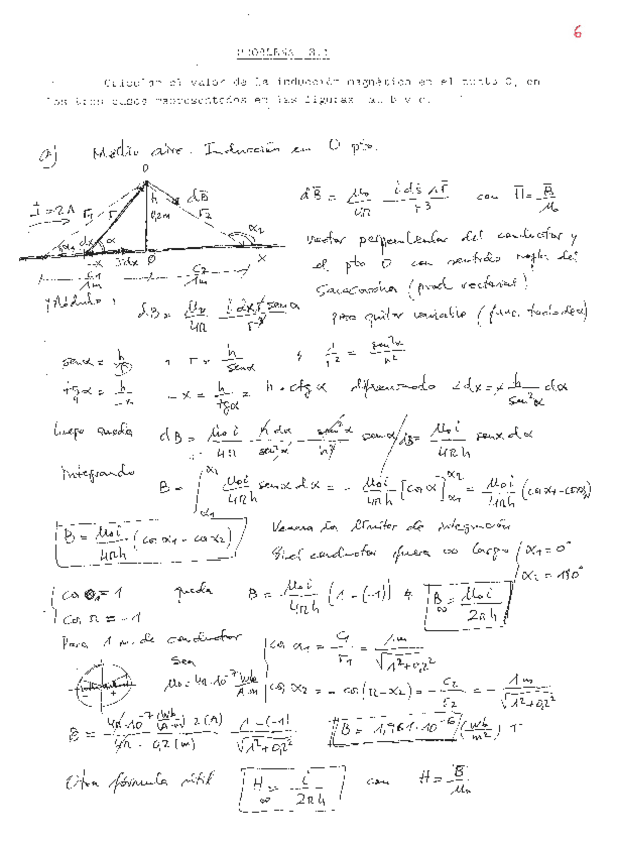 6
PROBLEMA 3.1
Calcular el valor de la inducción magnética en el punto O, en
los tres casos representados en las figuras a, b y c.
a) Medio aire. Inducción en O pto.
O
I = 2A r₁ r h 0,2m dB̄ r₂ α₁ dx α α₂
-x dx O x
c₁ 1m c₂ 1m
dB̄ = μ₀/4π · i ds̄ ∧ r̄ / r³ con H̄ = B̄/μ₀
vector perpendicular del conductor y
el pto O con sentido regla del
Sacacorchos (prod. vectorial)
y Módulo: dB = μ₀/4π · i dx r senα / r³
para quitar variable (func. todo de α)
senα = h/r , r = h/senα ; 1/r² = sen²α/h²
tgα = h/-x -x = h/tgα = h · ctgα diferenciando dx = h/sen²α dα
luego queda dB = μ₀ i/4π · h dα/sen²α · sen²α/h² senα / dB = μ₀ i/4πh senα dα
integrando B = ∫α₁^α₂ μ₀ i/4πh senα dα = - μ₀ i/4πh [cosα]α₁^α₂ = μ₀ i/4πh (cosα₁ - cosα₂)
B = μ₀ i/4πh · (cosα₁ - cosα₂)
Veamos los límites de integración
Si el conductor fuera ∞ largo α₁ = 0° α₂ = 180°
cos 0 = 1 queda B = μ₀ i/4πh (1 - (-1)) B∞ = μ₀ i/2πh
cos π = -1
Para 1 m. de conductor
sea
cos α₁ = c₁/r₁ = 1m/√(1²+0,2²)
μ₀ = 4π·10⁻⁷ Wb/A·m cos α₂ = - cos(π - α₂) = - c₂/r₂ = - 1m/√(1²+0,2²)
B = 4π·10⁻⁷ (Wb/A·m) 2(A) / 4π · 0,2 (m) · 1-(-1)/√(1²+0,2²) B = 1,961·10⁻⁶ (Wb/m²) T
Otra fórmula útil H∞ = i/2πh con H = B̄/μ₀